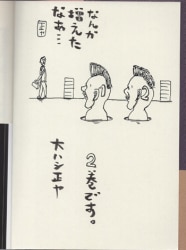 なんか
増えた
なあ…
2巻です。
大ハシ正ヤ